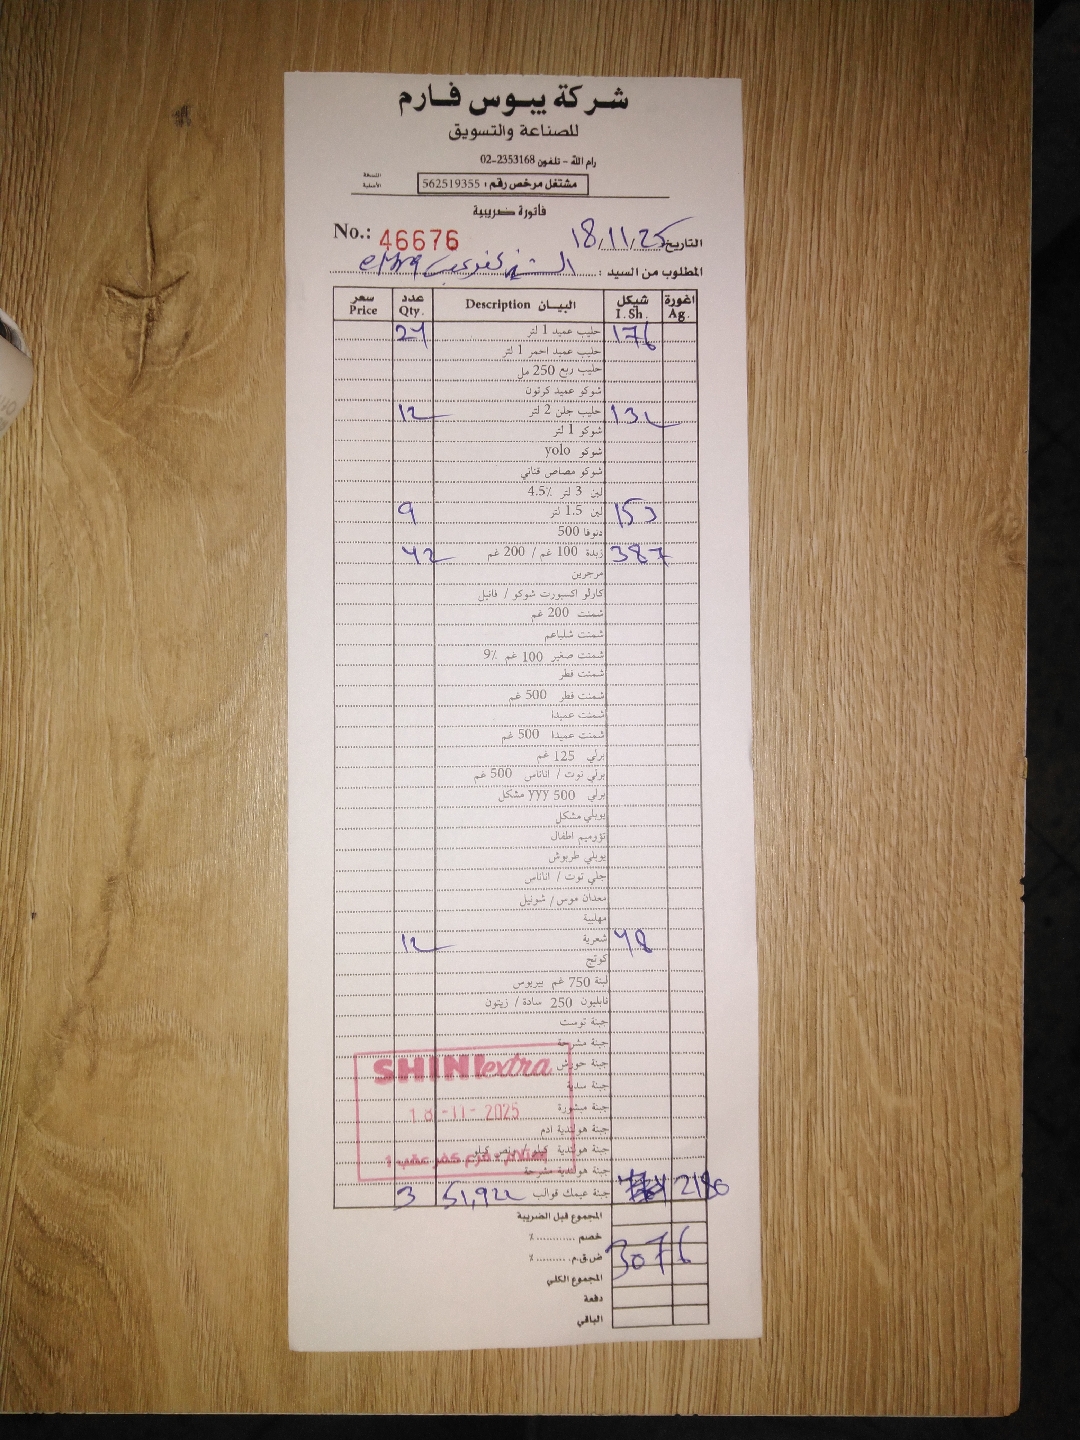 شركة يبوس فارم
للصناعة والتسويق
رام الله - تلفون 02-2353168
النسخة الأصلية
مشتغل مرخص رقم : 562519355
فاتورة ضريبية
No.: 46676
التاريخ 18/11/25
المطلوب من السيد :
سعر Price عدد Qty. البيـان Description شيكل I. Sh. اغورة Ag.
حليب عميد 1 لتر 176
حليب عميد احمر 1 لتر
حليب ربع 250 مل
شوكو عميد كرتون
12 حليب جلن 2 لتر 132
شوكو 1 لتر
شوكو yolo
شوكو مصاص قناني
لبن 3 لتر 4.5٪
9 لبن 1.5 لتر 153
دنوفا 500
42 زبدة 100 غم / 200 غم 387
مرجرين
كارلو اكسبورت شوكو / فانيل
شمنت 200 غم
شمنت شلباعم
شمنت صغير 100 غم 9٪
شمنت فطر
شمنت فطر 500 غم
شمنت عميدا
شمنت عميدا 500 غم
برلي 125 غم
برلي توت / اناناس 500 غم
برلي yyy 500 مشكل
يوبلي مشكل
تؤوميم اطفال
يوبلي طربوش
جلي توت / اناناس
معدان موس / شونيل
مهلبية
12 شعرية 48
كوتج
لبنة 750 غم بيريوس
نابليون 250 سادة / زيتون
جبنة توست
جبنة مشرحة
جبنة حورش
جبنة سدية
جبنة مبشورة
جبنة هولندية ادم
جبنة هولندية كيلو / ونص كيلو
جبنة هولندية مشرحة
3 51,922 جبنة عيمك قوالب 2180
SHINI extra
18-11-2025
المجموع قبل الضريبة
خصم ............ ٪
ض.ق.م. ......... ٪ 3076
المجموع الكلي
دفعة
الباقي